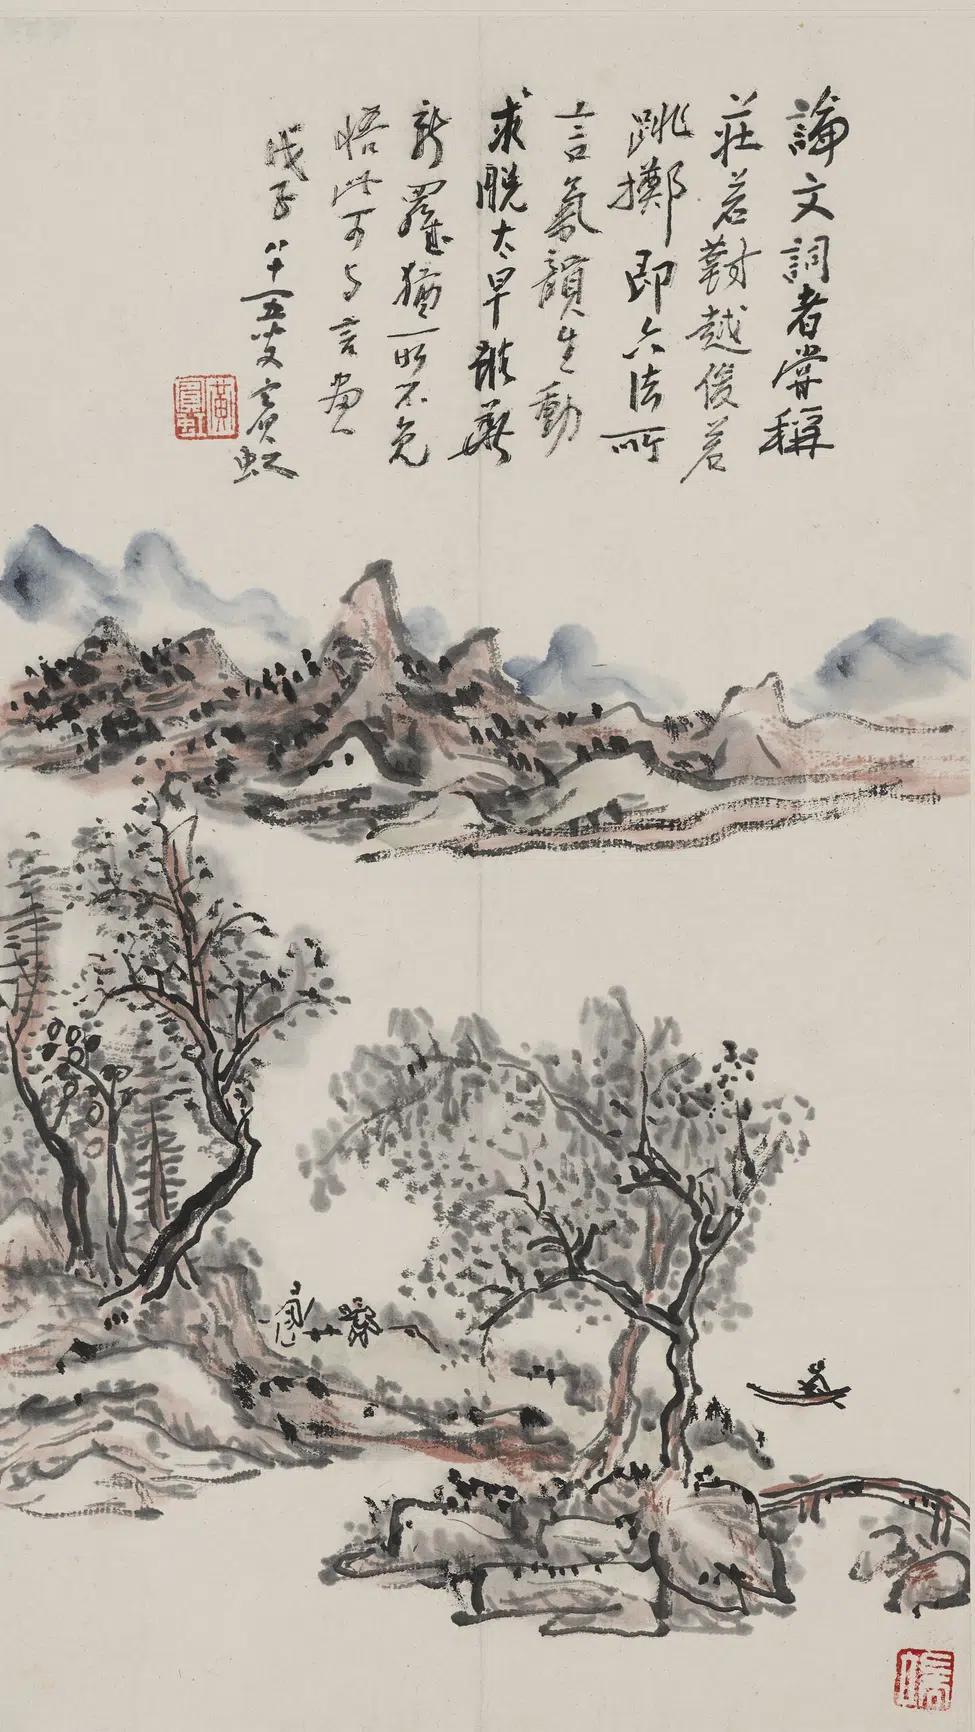 論文詞者嘗稱
莊若對越俊若
跳擲即六法所
言氣韻生動
求脫太早雖華
新羅猶所不免
悟此可与言畫
戊子八十五叟賓虹
黃賓虹